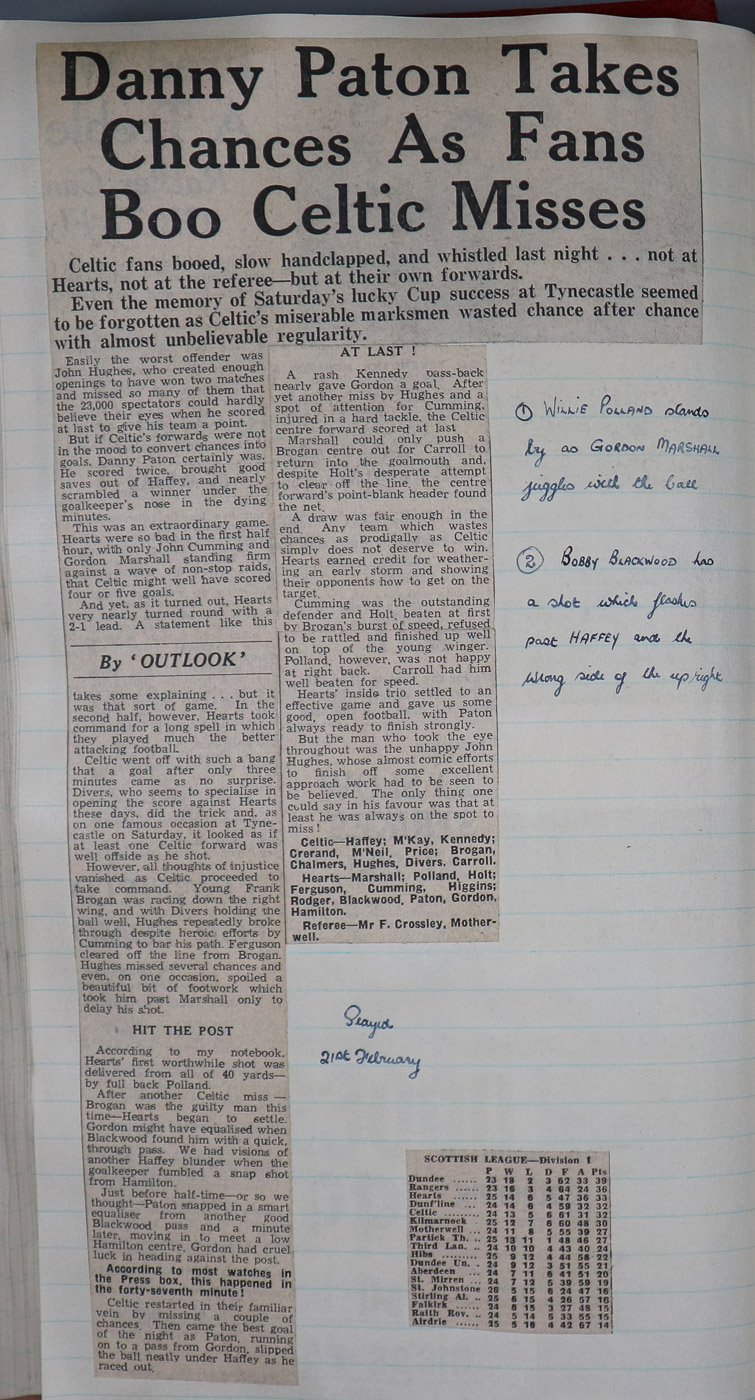 Danny Paton Takes
Chances As Fans
Boo Celtic Misses
Celtic fans booed, slow handclapped, and whistled last night . . . not at
Hearts, not at the referee—but at their own forwards.
Even the memory of Saturday's lucky Cup success at Tynecastle seemed
to be forgotten as Celtic's miserable marksmen wasted chance after chance
with almost unbelievable regularity.
Easily the worst offender was
John Hughes, who created enough
openings to have won two matches
and missed so many of them that
the 23,000 spectators could hardly
believe their eyes when he scored
at last to give his team a point.
But if Celtic's forwards were not
in the mood to convert chances into
goals, Danny Paton certainly was.
He scored twice, brought good
saves out of Haffey, and nearly
scrambled a winner under the
goalkeeper's nose in the dying
minutes.
This was an extraordinary game.
Hearts were so bad in the first half
hour, with only John Cumming and
Gordon Marshall standing firm
against a wave of non-stop raids,
that Celtic might well have scored
four or five goals.
And yet, as it turned out, Hearts
very nearly turned round with a
2-1 lead. A statement like this
By 'OUTLOOK'
takes some explaining . . . but it
was that sort of game. In the
second half, however, Hearts took
command for a long spell in which
they played much the better
attacking football.
Celtic went off with such a bang
that a goal after only three
minutes came as no surprise.
Divers, who seems to specialise in
opening the score against Hearts
these days, did the trick and, as
on one famous occasion at Tyne-
castle on Saturday, it looked as if
at least one Celtic forward was
well offside as he shot.
However, all thoughts of injustice
vanished as Celtic proceeded to
take command. Young Frank
Brogan was racing down the right
wing, and with Divers holding the
ball well, Hughes repeatedly broke
through despite heroic efforts by
Cumming to bar his path. Ferguson
cleared off the line from Brogan.
Hughes missed several chances and
even, on one occasion, spoiled a
beautiful bit of footwork which
took him past Marshall only to
delay his shot.
HIT THE POST
According to my notebook,
Hearts' first worthwhile shot was
delivered from all of 40 yards—
by full back Polland.
After another Celtic miss —
Brogan was the guilty man this
time—Hearts began to settle.
Gordon might have equalised when
Blackwood found him with a quick,
through pass. We had visions of
another Haffey blunder when the
goalkeeper fumbled a snap shot
from Hamilton.
Just before half-time—or so we
thought—Paton snapped in a smart
equaliser from another good
Blackwood pass and a minute
later, moving in to meet a low
Hamilton centre, Gordon had cruel
luck in heading against the post.
According to most watches in
the Press box, this happened in
the forty-seventh minute!
Celtic restarted in their familiar
vein by missing a couple of
chances. Then came the best goal
of the night as Paton, running
on to a pass from Gordon, slipped
the ball neatly under Haffey as he
raced out.
AT LAST !
A rash Kennedy pass-back
nearly gave Gordon a goal. After
yet another miss by Hughes and a
spot of attention for Cumming,
injured in a hard tackle, the Celtic
centre forward scored at last
Marshall could only push a
Brogan centre out for Carroll to
return into the goalmouth and,
despite Holt's desperate attempt
to clear off the line, the centre
forward's point-blank header found
the net.
A draw was fair enough in the
end. Any team which wastes
chances as prodigally as Celtic
simply does not deserve to win.
Hearts earned credit for weather-
ing an early storm and showing
their opponents how to get on the
target.
Cumming was the outstanding
defender and Holt, beaten at first
by Brogan's burst of speed, refused
to be rattled and finished up well
on top of the young winger.
Polland, however, was not happy
at right back. Carroll had him
well beaten for speed.
Hearts' inside trio settled to an
effective game and gave us some
good, open football, with Paton
always ready to finish strongly.
But the man who took the eye
throughout was the unhappy John
Hughes, whose almost comic efforts
to finish off some excellent
approach work had to be seen to
be believed. The only thing one
could say in his favour was that at
least he was always on the spot to
miss !
Celtic—Haffey; M'Kay, Kennedy;
Crerand, M'Neil, Price; Brogan,
Chalmers, Hughes, Divers, Carroll.
Hearts—Marshall; Polland, Holt;
Ferguson, Cumming, Higgins;
Rodger, Blackwood, Paton, Gordon,
Hamilton.
Referee—Mr F. Crossley, Mother-
well.
① WILLIE POLLAND stands
by as GORDON MARSHALL
juggles with the ball
② BOBBY BLACKWOOD has
a shot which flashes
past HAFFEY and the
wrong side of the upright
Played
21st February
SCOTTISH LEAGUE—Division I
P W L D F A Pts
Dundee ...... 23 18 2 3 62 33 39
Rangers ...... 23 16 3 4 64 24 36
Hearts ...... 25 14 6 5 47 36 33
Dunf'line ... 24 14 6 4 59 32 32
Celtic ......... 24 13 5 6 61 31 32
Kilmarnock .. 25 12 7 6 60 48 30
Motherwell .. 24 11 8 5 55 39 27
Partick Th. .. 25 13 11 1 48 46 27
Third Lan. .. 24 10 10 4 43 40 24
Hibs ...... 25 9 12 4 44 58 22
Dundee Un. .. 24 9 12 3 51 55 21
Aberdeen .... 24 7 11 6 41 51 20
St. Mirren .. 24 7 12 5 39 59 19
St. Johnstone 26 5 15 6 24 47 16
Stirling Al. .. 25 6 15 4 26 57 16
Falkirk ...... 24 6 15 3 27 48 15
Raith Rov. .. 24 5 14 5 33 55 15
Airdrie ...... 25 5 16 4 42 67 14